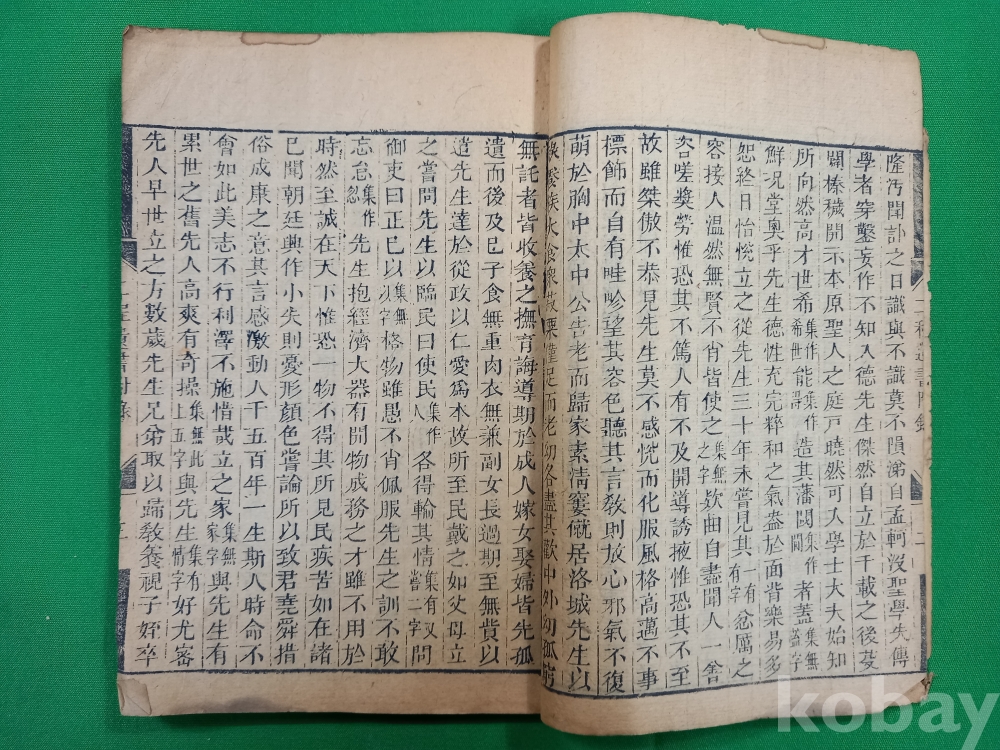 隆汚聞訃之日識與不識莫不隕涕自孟軻沒聖學失傳
學者穿鑿妄作不知入德先生傑然自立於千載之後芟
闢榛穢開示本原聖人之庭戸曉然可入學士大夫始知
所向然高才世希集作希世能得集作造其藩閾集作閫者蓋集無蓋字
鮮况堂奥乎先生德性充完粹和之氣盎於面背樂易多
恕終日怡恱立之從先生三十年未嘗見其一有有字忿厲之
容接人温然無賢不肖皆使之集無之字欵曲自盡聞人一善
咨嗟奬勞惟恐其不篤人有不及開導誘掖惟恐其不至
故雖桀傲不恭見先生莫不感恱而化服風格高邁不事
標飾而自有畦畛望其容色聽其言教則放心邪氣不復
萌於胸中太中公告老而歸家素清窶僦居洛城先生以
禄養族大食衆菽粟僅足而老幼各盡其歡中外幼孤窮
無託者皆收養之撫育誨導期於成人嫁女娶婦皆先孤
遺而後及已子食無重肉衣無兼副女長過期至無貲以
遣先生達於從政以仁愛爲本故所至民戴之如父母立
之嘗問先生以臨民曰使民集作人各得輸其情集有又嘗二字問
御吏曰正已以集無以字格物雖愚不肖佩服先生之訓不敢
忘怠集作忽先生抱經濟大器有開物成務之才雖不用於
時然至誠在天下惟恐一物不得其所見民疾苦如在諸
已聞朝廷興作小失則憂形顔色嘗論所以致君堯舜措
俗成康之意其言感激動人千五百年一生斯人時命不
會如此美志不行利澤不施惜哉立之家集無家字與先生有
累世之舊先人高爽有奇操集無此上五字與先生集有情字好尤密
先人早世立之方數歲先生兄弟取以歸教養視子姪卒
二程遺書附錄
二
二程遺書附錄
kobay